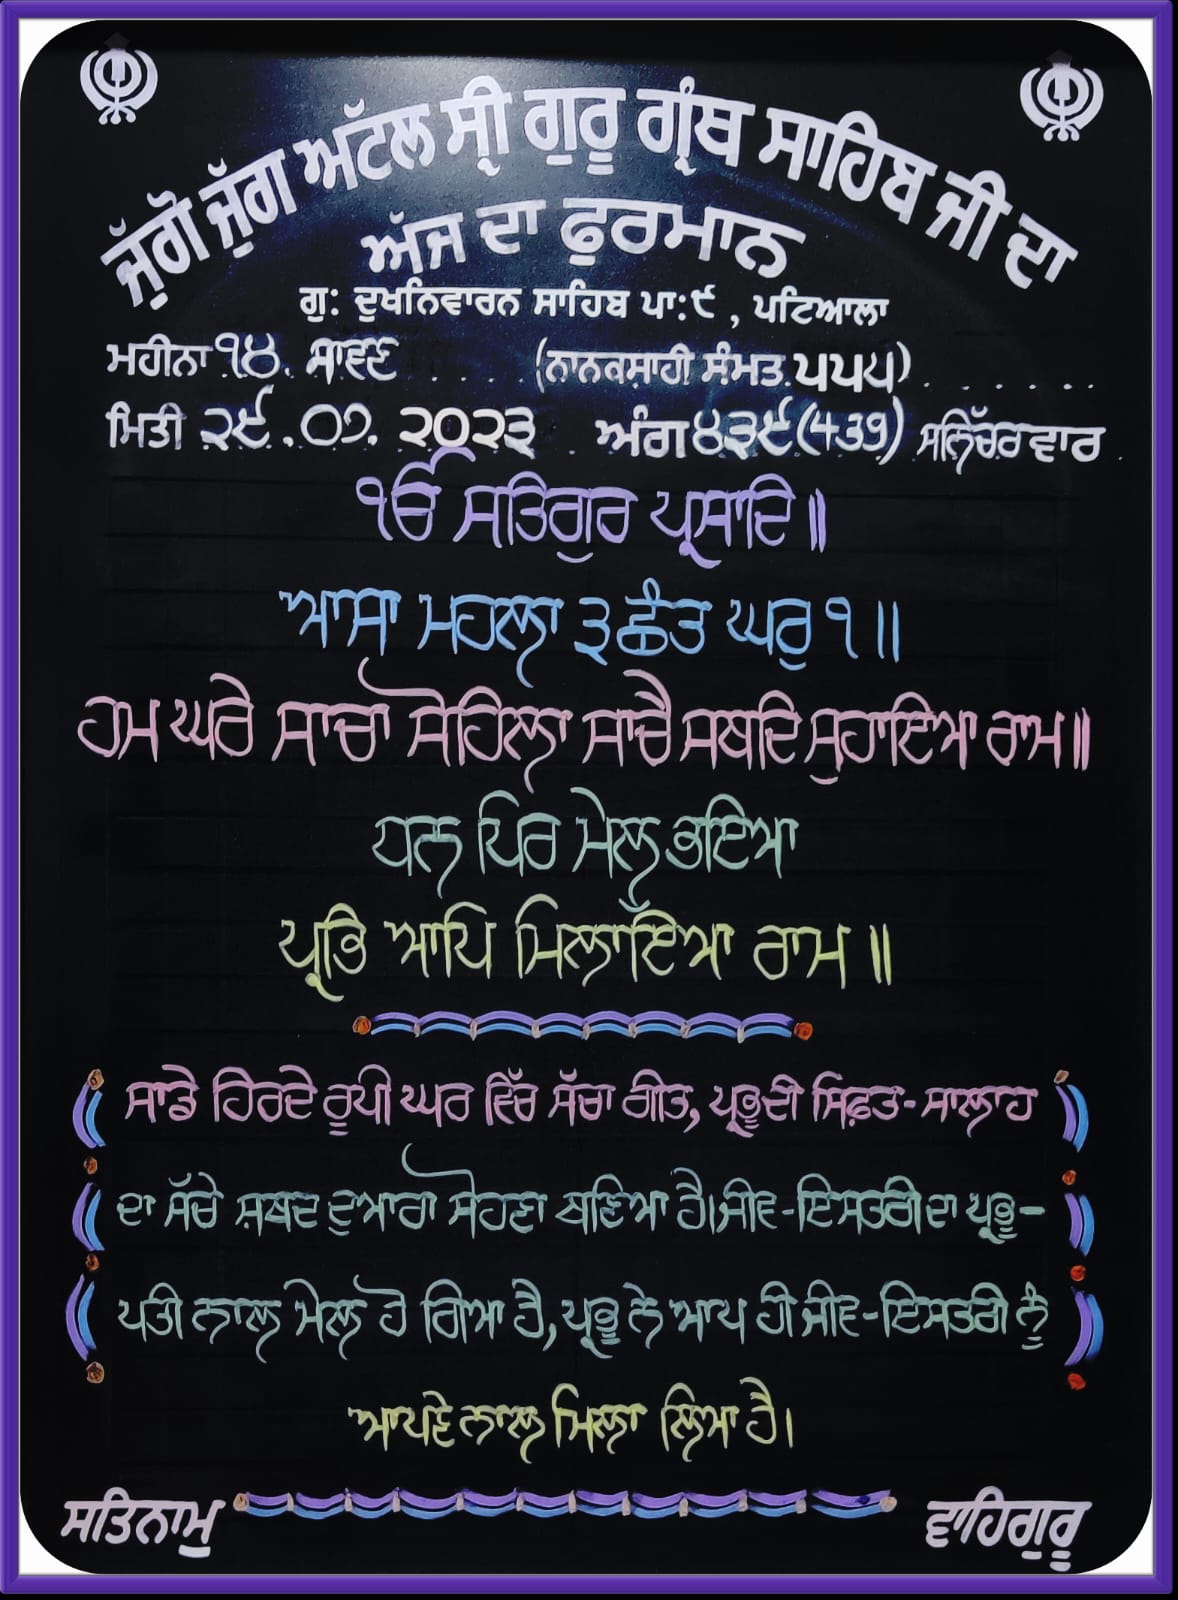 ਜੁੱਗੋ ਜੁੱਗ ਅੱਟਲ ਸ੍ਰੀ ਗੁਰੂ ਗ੍ਰੰਥ ਸਾਹਿਬ ਜੀ ਦਾ
ਅੱਜ ਦਾ ਫੁਰਮਾਨ
ਗੁ: ਦੁਖਨਿਵਾਰਨ ਸਾਹਿਬ ਪਾ:੯ , ਪਟਿਆਲਾ
ਮਹੀਨਾ ੧੪. ਸਾਵਣ (ਨਾਨਕਸ਼ਾਹੀ ਸੰਮਤ ੫੫੫)
ਮਿਤੀ ੨੯.੦੭.੨੦੨੩ ਅੰਗ ੪੩੯ (439) ਸਨਿੱਚਰਵਾਰ
ੴ ਸਤਿਗੁਰ ਪ੍ਰਸਾਦਿ॥
ਆਸਾ ਮਹਲਾ ੩ ਛੰਤ ਘਰੁ ੧॥
ਹਮ ਘਰੇ ਸਾਚਾ ਸੋਹਿਲਾ ਸਾਚੈ ਸਬਦਿ ਸੁਹਾਇਆ ਰਾਮ॥
ਧਨ ਪਿਰ ਮੇਲੁ ਭਇਆ
ਪ੍ਰਭਿ ਆਪਿ ਮਿਲਾਇਆ ਰਾਮ॥
ਸਾਡੇ ਹਿਰਦੇ ਰੂਪੀ ਘਰ ਵਿੱਚ ਸੱਚਾ ਗੀਤ, ਪ੍ਰਭੂ ਦੀ ਸਿਫ਼ਤ-ਸਾਲਾਹ
ਦਾ ਸੱਚੇ ਸ਼ਬਦ ਦੁਆਰਾ ਸੋਹਣਾ ਬਣਿਆ ਹੈ। ਜੀਵ-ਇਸਤਰੀ ਦਾ ਪ੍ਰਭੂ-
ਪਤੀ ਨਾਲ ਮੇਲ ਹੋ ਗਿਆ ਹੈ, ਪ੍ਰਭੂ ਨੇ ਆਪ ਹੀ ਜੀਵ-ਇਸਤਰੀ ਨੂੰ
ਆਪਣੇ ਨਾਲ ਮਿਲਾ ਲਿਆ ਹੈ।
ਸਤਿਨਾਮੁ ਵਾਹਿਗੁਰੂ